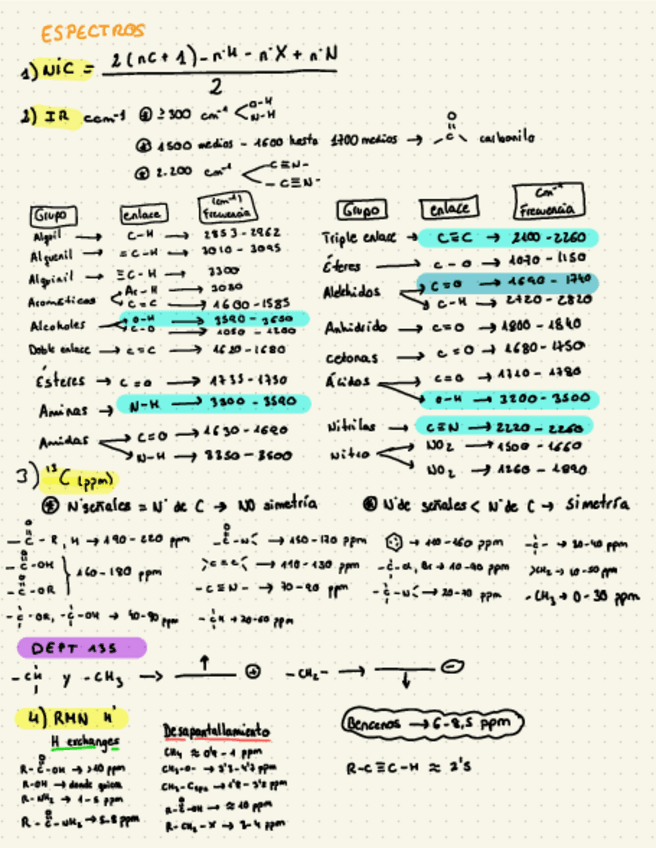 ESPECTROS
1) NiC = 2(nC + 1) - nºH - nºX + nºN
2
2) IR cm-1 ≥300 cm-1 < O-H
N-H
1500 medios - 1600 hasta 1700 medios → O || -C- carbonilo
2.200 cm-1 < C≡N-
-C≡N-
Grupo enlace (cm-1) Frecuencia
Alquil → C-H → 2853-2962
Alquenil → =C-H → 3010-3095
Alquinil → ≡C-H → 3300
Aromáticos Ar-H → 3030
C=C → 1600-1585
Alcoholes O-H → 3590-3650
C-O → 1050-1200
Doble enlace → C=C → 1620-1680
Ésteres → C=O → 1735-1750
Aminas → N-H → 3300-3500
Amidas C=O → 1630-1690
N-H → 3350-3500
Grupo enlace cm-1 Frecuencia
Triple enlace → C≡C → 2100-2260
Éteres → C-O → 1070-1150
Aldehidos C=O → 1690-1740
C-H → 2720-2820
Anhidrido → C=O → 1800-1840
Cetonas → C=O → 1680-1750
Ácidos C=O → 1710-1780
O-H → 3200-3500
Nitrilos → C≡N → 2220-2260
Nitro NO2 → 1500-1660
NO2 → 1260-1390
3) 13C (ppm)
Nºseñales = Nº de C → NO simetría
Nº de señales < Nº de C → Simetría
O || -C-R, H → 190-220 ppm
O || -C-OH
O || -C-OR } 160-180 ppm
-C-OR, -C-OH → 40-90 ppm
O || -C-N< → 150-170 ppm
>C=C< → 110-130 ppm
-C≡N- → 70-90 ppm
-CH → 20-60 ppm
→ 100-160 ppm
-C-Cl, Br → 10-90 ppm
-C-N< → 20-70 ppm
-C- → 30-40 ppm
>CH2 → 10-50 ppm
-CH3 → 0-30 ppm
DEPT 135
-CH y -CH3 → ↑ +
-CH2- → ↓ -
4) RMN H1
H exchanges
R-C-OH → >10 ppm
R-OH → donde quiera
R-NH2 → 1-5 ppm
R-C-NH2 → 5-8 ppm
Desapantallamiento
CH4 ≈ 0'4-1 ppm
CH3-O- → 3'3-4'3 ppm
CH3-Csp2 → 1'8-3'2 ppm
R-C-OH → ≈10 ppm
R-CH2-X → 2-4 ppm
Bencenos → 6-8,5 ppm
R-C≡C-H ≈ 2'5